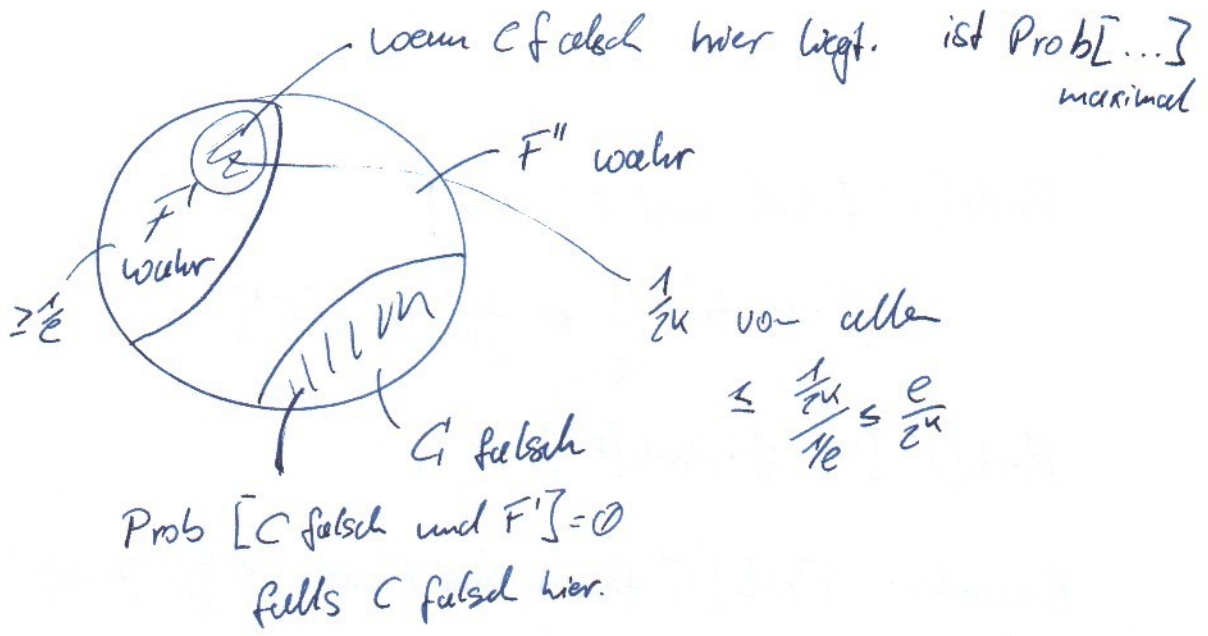 wenn C falsch hier liegt. ist Prob[...]
maximal
F'' wahr
F'
wahr
≥ 1/e
1/2^k von allen
≤ (1/2^k)/(1/e) ≤ e/2^k
C falsch
Prob [C falsch und F'] = 0
falls C falsch hier.